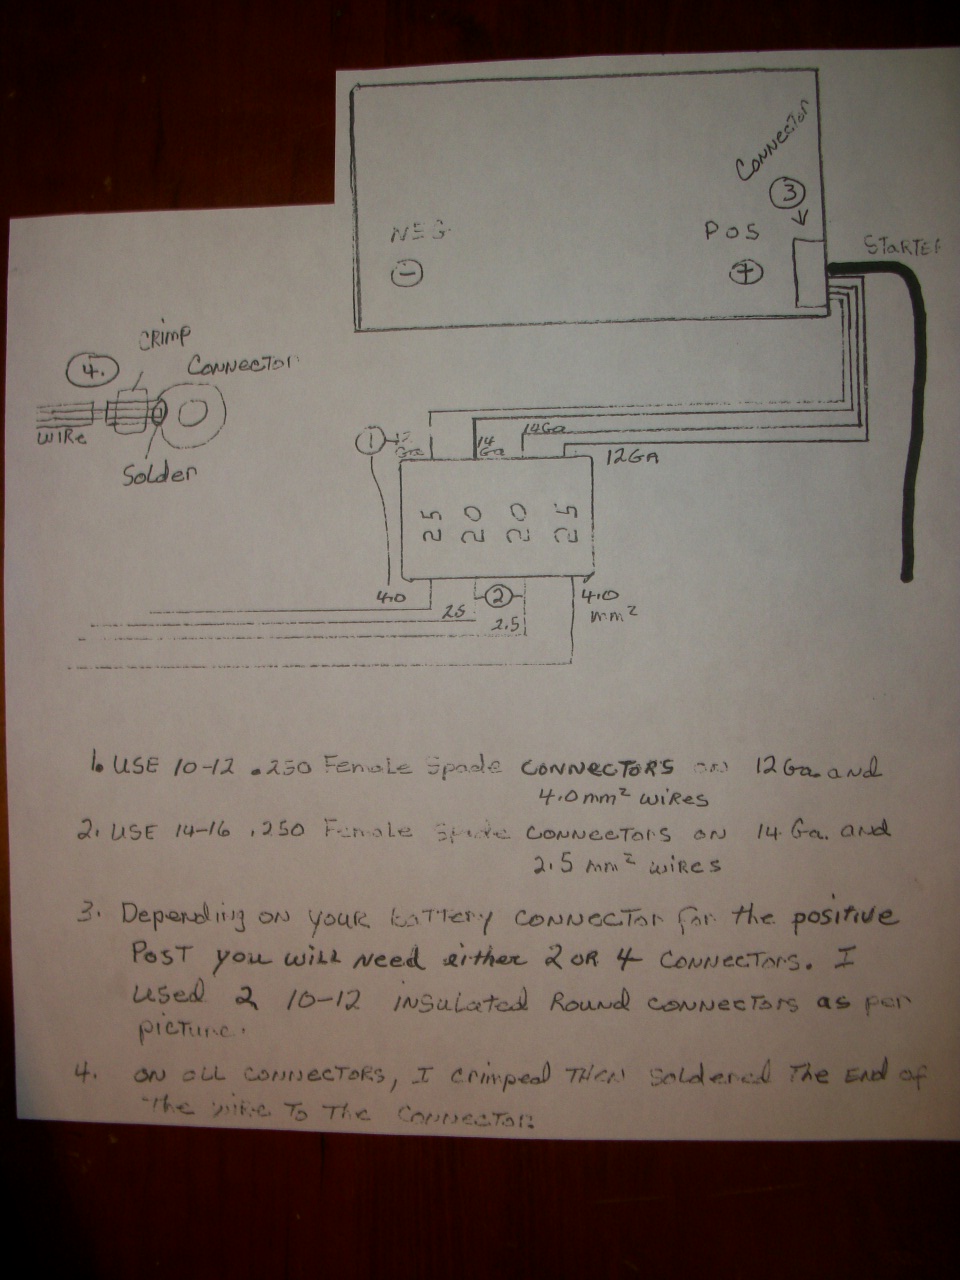 Connector
3
NEG
POS
STARTER
-
+
CRimp
4.
Connector
WIRe
Solder
1
Ga
14
Ga
14Ga
12GA
25
20
20
25
4.0
2
4.0
mm²
25
2.5
1. USE 10-12 .250 Female Spade CONNECTORS on 12Ga. and
4.0mm² wires
2. USE 14-16 .250 Female Spade CONNECTORS on 14 Ga. and
2.5 mm² wires
3. Depending on your battery connector for the positive
Post you will need either 2 OR 4 connectors. I
used 2 10-12 insulated Round connectors as per
picture.
4. ON all connectors, I crimped THEN Soldered The End of
The wire To The Connector.